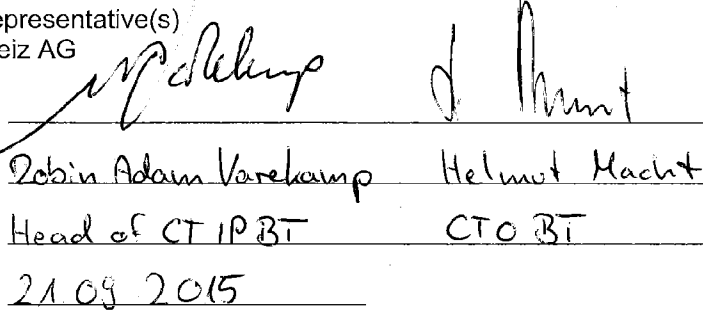 epresentative(s)
eiz AG
Robin Adam Varekamp Helmut Macht
Head of CT IP BT CTO BT
21 09 2015